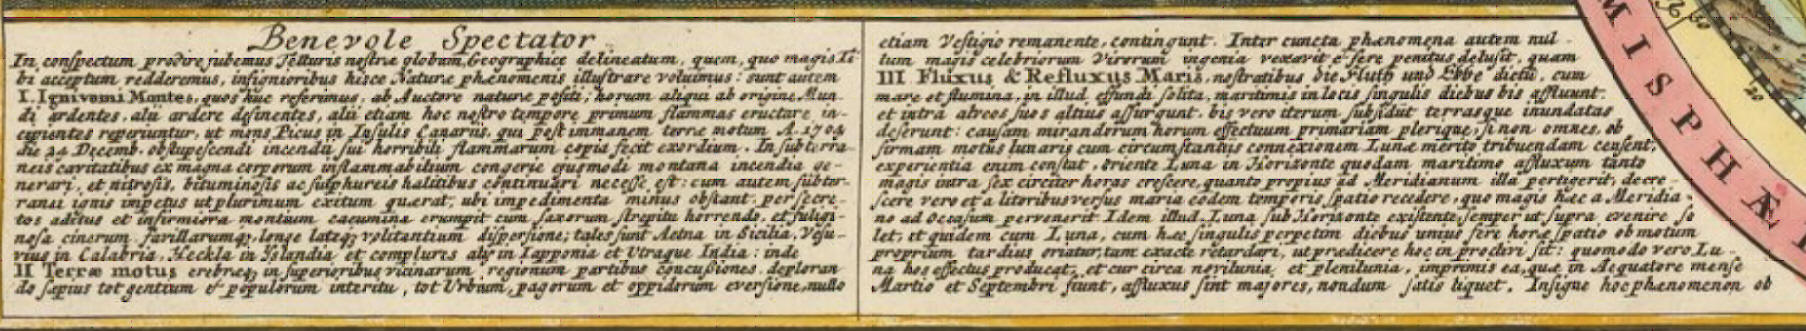 Benevole Spectator
In conspectum prodire jubemus Telluris nostræ globum Geographice delineatum, quem, quo magis Ti-
bi acceptum redderemus, insignioribus hisce Naturæ phænomenis illustrare voluimus: sunt autem
I. Ignivomi Montes, quos huc referimus, ab Auctore naturæ positi; horum aliqui ab origine Mun-
di ardentes, alii ardere desinentes, alii etiam hoc nostro tempore primum flammas eructare in-
cipientes reperiuntur, ut mons Picus in Insulis Canariis, qui post immanem terræ motum A. 1704
die 24 Decemb. obstupescendi incendii sui horribili flammarum copia fecit exordium. In subterra-
neis cavitatibus ex magna corporum inflammabilium congerie ejusmodi montana incendia ge-
nerari, et nitrosis, bituminosis ac sulphureis halitibus continuari necesse est: cum autem subter-
ranei ignis impetus ut plurimum exitum quærat, ubi impedimenta minus obstant, per secre-
tos aditus et infirmiora montium cacumina erumpit cum saxorum strepitu horrendo, et fuligi-
nosa cinerum favillarumq; longe lateq; volitantium dispersione; tales sunt Aetna in Sicilia, Vesu-
vius in Calabria, Heckla in Islandia et complures alii in Lapponia et Utraque India: inde
II Terræ motus crebriq; in superioribus vicinarum regionum partibus concussiones, deploran-
do sæpius tot gentium & populorum interitu, tot Urbium, pagorum et oppidorum eversione, nullo
etiam Vestigio remanente, contingunt. Inter cuncta phænomena autem nul-
lum magis celebriorum Virorum ingenia vexavit & fere penitus delusit, quam
III Fluxus & Refluxus Maris, nostratibus die Fluth und Ebbe dictu, cum
mare et flumina, in illud effundi solita, maritimis in locis singulis diebus bis affluunt
et intra alveos suos altius assurgunt, bis vero iterum subsidunt terrasque inundatas
deserunt: causam mirandorum horum effectuum primariam plerique, si non omnes, ob
firmam motus lunaris cum circumstantiis connexionem Lunæ merito tribuendam censent;
experientia enim constat, oriente Luna in Horizonte quodam maritimo affluxum tanto
magis intra sex circiter horas crescere, quanto propius ad Meridianum illa pertigerit, decre-
scere vero et a litoribus versus maria eodem temporis spatio recedere, quo magis hæc a Meridia-
no ad Occasum pervenerit. Idem illud, Luna sub Horizonte existente, semper ut supra evenire so-
let, et quidem cum Luna, cum hæc singulis perpetim diebus unius fere horæ spatio ob motum
proprium tardius oriatur, tam exacte retardari, ut prædicere hoc in proclivi sit: quomodo vero Lu-
na hos effectus producat, et cur circa novilunia et plenilunia, imprimis ea, quæ in Aequatore mense
Martio et Septembri fiunt, affluxus sint majores, nondum satis liquet. Insigne hoc phænomenon ob
MISPHÆ
20